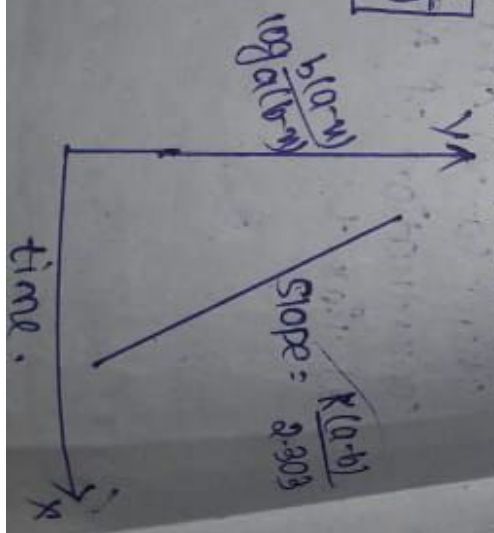 Y
log b(a-x)
a(b-x)
Slope = K(a-b)
2.303
time.
X